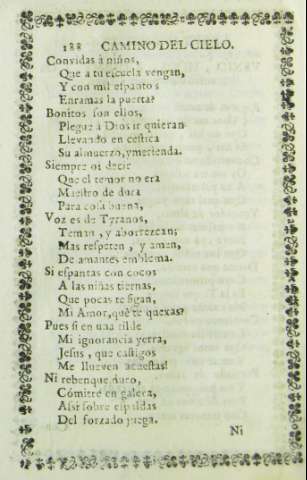 188 CAMINO DEL CIELO.
Convidas à niños,
Que a tu escuela vengan,
Y con mil espantos
Enramas la puerta?
Bonitos son ellos,
Plegue à Dios ir quieran
Llevando en cestica
Su almuerzo, y merienda.
Siempre oi decir
Que el temor no era
Maestro de dura
Para cosa buena,
Voz es de Tyranos,
Teman, y aborrezcan;
Mas respeten, y amen,
De amantes emblema.
Si espantas con cocos
A las niñas tiernas,
Que pocas te sigan,
Mi Amor, què te quexas?
Pues si en una tilde
Mi ignorancia yerra,
Jesus, que castigos
Me llueven acuestas!
Ni rebenque duro,
Cómitre en galera,
Assi sobre espaldas
Del forzado juega.
Ni